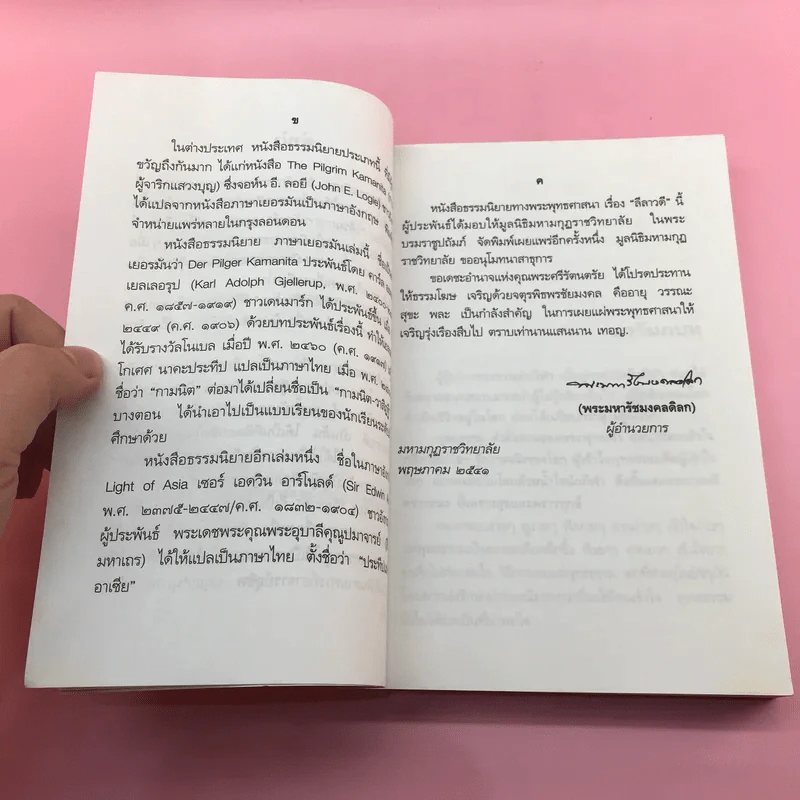 ข
ในต่างประเทศ หนังสือธรรมนิยายประเภทนี้
ขวัญถึงกันมาก ได้แก่หนังสือ The Pilgrim Kamanita
ผู้จาริกแสวงบุญ) ซึ่งจอห์น อี. ลอยี (John E. Logie)
ได้แปลจากหนังสือภาษาเยอรมันเป็นภาษาอังกฤษ
จำหน่ายแพร่หลายในกรุงลอนดอน
หนังสือธรรมนิยาย ภาษาเยอรมันเล่มนี้
เยอรมันว่า Der Pilger Kamanita ประพันธ์โดย คาร์ล
เยลเลอรุป (Karl Adolph Gjellerup, พ.ศ. ๒๔๐๐
ค.ศ. ๑๘๕๗-๑๙๑๙) ชาวเดนมาร์ก ได้ประพันธ์ขึ้น
๒๔๔๙ (ค.ศ. ๑๙๐๖) ด้วยบทประพันธ์เรื่องนี้ ทำให้
ได้รับรางวัลโนเบล เมื่อปี พ.ศ. ๒๔๖๐ (ค.ศ. ๑๙๑๗)
โกเศศ นาคะประทีป แปลเป็นภาษาไทย เมื่อ พ.ศ.
ชื่อว่า "กามนิต" ต่อมาได้เปลี่ยนชื่อเป็น "กามนิต-วาสิฏฐี
บางตอน ได้นำเอาไปเป็นแบบเรียนของนักเรียนระดับ
ศึกษาด้วย
หนังสือธรรมนิยายอีกเล่มหนึ่ง ชื่อในภาษา
Light of Asia เซอร์ เอดวิน อาร์โนลด์ (Sir Edwin
พ.ศ. ๒๓๗๕-๒๔๔๗/ค.ศ. ๑๘๓๒-๑๙๐๔)
ผู้ประพันธ์ พระเดชพระคุณพระอุบาลีคุณูปมาจารย์
มหาเถร) ได้ให้แปลเป็นภาษาไทย ตั้งชื่อว่า
อาเซีย"
ค
หนังสือธรรมนิยายทางพระพุทธศาสนา เรื่อง "ลีลาวดี" นี้
ผู้ประพันธ์ได้มอบให้มูลนิธิมหามกุฏราชวิทยาลัย ในพระ
บรมราชูปถัมภ์ จัดพิมพ์เผยแพร่อีกครั้งหนึ่ง มูลนิธิมหามกุฏ
ราชวิทยาลัย ขออนุโมทนาสาธุการ
ขอเดชะอำนาจแห่งคุณพระศรีรัตนตรัย ได้โปรดประทาน
ให้ธรรมโฆษ เจริญด้วยจตุรพิธพรชัยมงคล คืออายุ วรรณะ
สุขะ พละ เป็นกำลังสำคัญ ในการเผยแผ่พระพุทธศาสนาให้
เจริญรุ่งเรืองสืบไป ตราบเท่านานแสนนาน เทอญ.
(พระมหารัชมงคลดิลก)
ผู้อำนวยการ
มหามกุฏราชวิทยาลัย
พฤษภาคม ๒๕๔๑